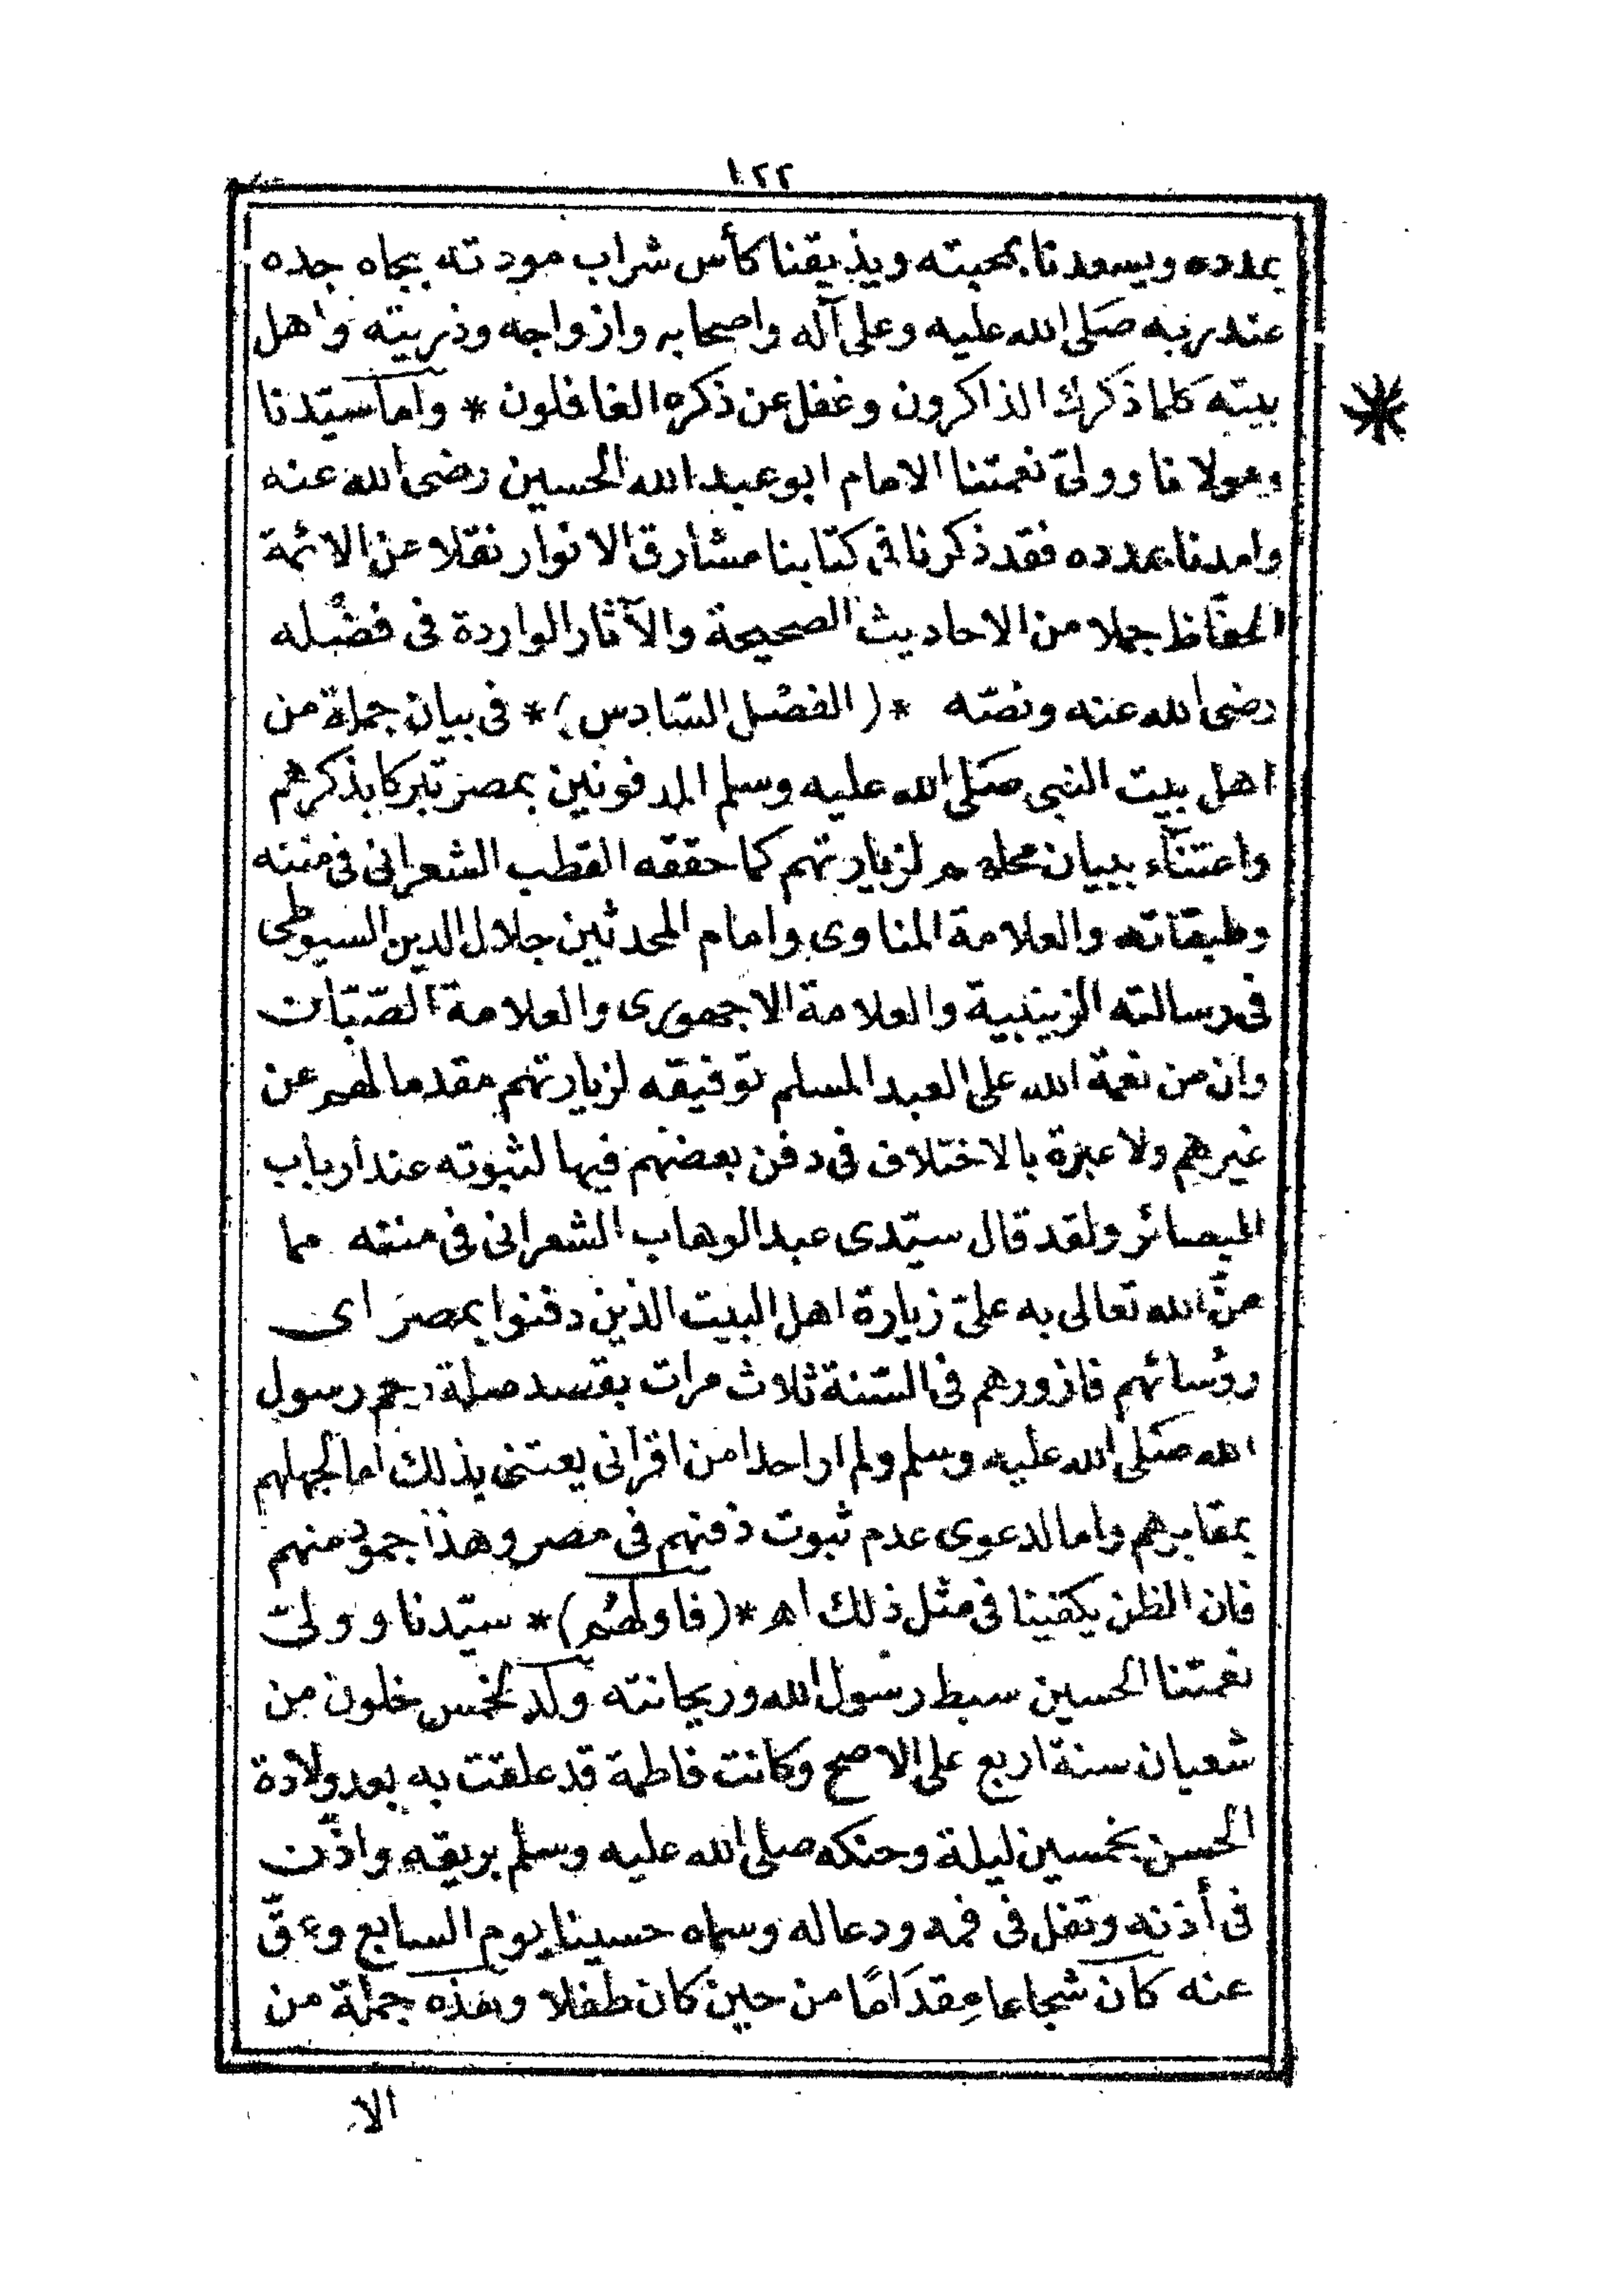 ١٢٢
بمدده ويسعدنا بمحبته ويذيقنا كأس شراب مودته بجاه جده
عند ربه صلى الله عليه وعلى آله واصحابه وازواجه وذريته واهل
بيته كلما ذكرك الذاكرون وغفل عن ذكره الغافلون * وأما سيّدنا
ومولانا وولىّ نعمتنا الامام ابو عبد الله الحسين رضى الله عنه
وامدنا بمدده فقد ذكرنا فى كتابنا مشارق الانوار نقلا عن الائمة
الحفّاظ جملا من الاحاديث الصحيحة والآثار الواردة فى فضله
رضى الله عنه ونصّه *(الفصل السّادس)* فى بيان جملة من
اهل بيت النبى صلى الله عليه وسلم المدفونين بمصر تبركا بذكرهم
واعتناء ببيان محلهم لزيارتهم كما حققه القطب الشعرانى فى مننه
وطبقاته والعلامة المناوى وامام المحدثين جلال الدين السيوطى
فى رسالته الزينبية والعلامة الاجهورى والعلامة الصّبّان
وان من نعمة الله على العبد المسلم توفيقه لزيارتهم مقدما لهم عن
غيرهم ولا عبرة بالاختلاف فى دفن بعضهم فيها لثبوته عند أرباب
البصائر ولقد قال سيّدى عبد الوهاب الشعرانى فى مننه مما
منّ الله تعالى به علىّ زيارة اهل البيت الذين دفنوا بمصر اى
رؤسائهم فازورهم فى السّنة ثلاث مرات بقصد صلة رحم رسول
الله صلى الله عليه وسلم ولم ار احدا من اقرانى يعتنى بذلك اما لجهلهم
بمقابرهم واما لدعوى عدم ثبوت دفنهم فى مصر وهذا جمود منهم
فان الظن يكفينا فى مثل ذلك اه *(فاولهم)* سيّدنا وولىّ
نعمتنا الحسين سبط رسول الله وريحانته ولد لخمس خلون من
شعبان سنة اربع على الاصح وكانت فاطمة قد علقت به بعد ولادة
الحسن بخمسين ليلة وحنكه صلى الله عليه وسلم بريقه واذّن
فى أذنه وتفل فى فمه ودعا له وسماه حسينا يوم السابع وعقّ
عنه كان شجاعا مقدامًا من حين كان طفلا وهذه جملة من
الا